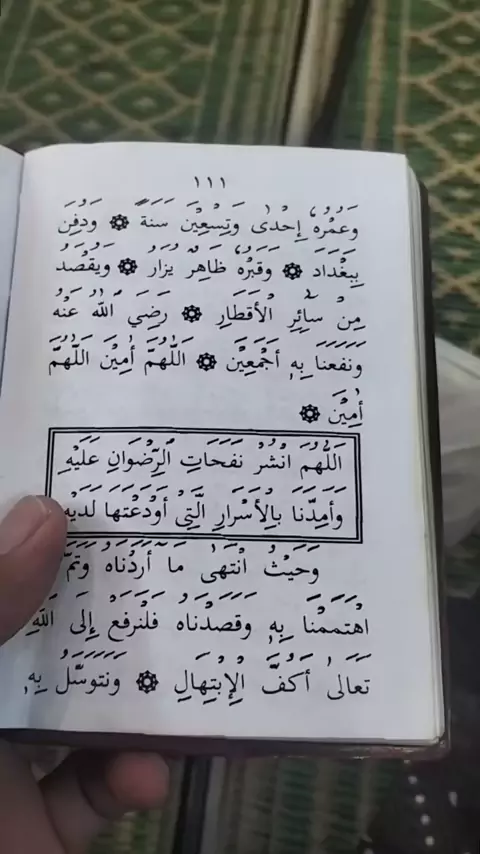 ١١١
وَعُمْرُهُ إِحْدَى وَتِسْعِيْنَ سَنَةً ۞ وَدُفِنَ
بِبَغْدَادَ ۞ وَقَبْرُهُ ظَاهِرٌ يُزَارُ ۞ وَيُقْصَدُ
مِنْ سَائِرِ الْأَقْطَارِ ۞ رَضِيَ اللهُ عَنْهُ
وَنَفَعَنَا بِهِ أَجْمَعِيْنَ ۞ اَللّٰهُمَّ أٰمِيْنَ اَللّٰهُمَّ
أٰمِيْنَ ۞
اَللّٰهُمَّ انْشُرْ نَفَحَاتِ الرِّضْوَانِ عَلَيْهِ
وَأَمِدَّنَا بِالْأَسْرَارِ الَّتِيْ أَوْدَعْتَهَا لَدَيْهِ
وَحَيْثُ انْتَهَى مَا أَرَدْنَاهُ وَتَمَّ
اهْتَمَمْنَا بِهِ وَقَصَدْنَاهُ فَلْنَرْفَعْ إِلَى اللهِ
تَعَالَى أَكُفَّ الْإِبْتِهَالِ ۞ وَنَتَوَسَّلُ بِهِ